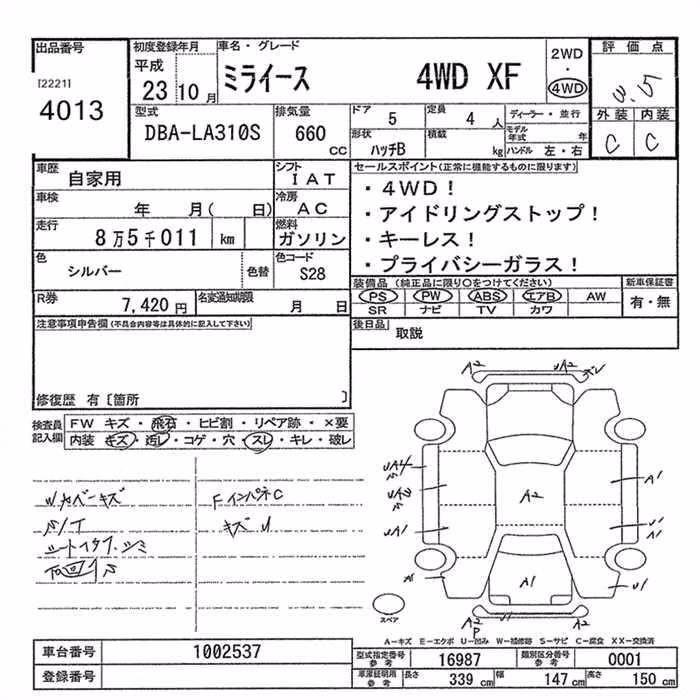 出品番号
[2221]
4013
初度登録年月
平成
23 10 月
車名・グレード
ミライース 4WD XF
2WD
・
4WD
評価点
3.5
外装 内装
C C
型式
DBA-LA310S
排気量
660 CC
ドア 5
定員 4 人
ディーラー・並行
形状 ハッチB
積載 kg
モデル年式 年
ハンドル 左・右
車歴 自家用
シフト IAT
車検 年 月( 日)
冷房 AC
走行 8万5千011 km
燃料 ガソリン
色 シルバー 色替
色コード S28
R券 7,420 円
名変通知期限 月 日
セールスポイント(正常に機能するものに限ります)
・4WD!
・アイドリングストップ!
・キーレス!
・プライバシーガラス!
装備品 (純正品に限り○をつけてください)
PS PW ABS エアB AW
SR ナビ TV カワ
新車保証書
有・無
後日品 取説
注意事項申告欄(不具合内容等は具体的に記入して下さい)
修復歴 有〔箇所 〕
検査員記入欄
FW キズ・飛石・ヒビ割・リペア跡・×要
内装 キズ・汚レ・コゲ・穴・スレ・キレ・破レ
Wカバーキズ
S/T
シート
下回りS
FインパネC
キズU
A2
UA2
A2
A1
UA1
A1
U1
A1
U1
A2
P
U1
スペア
A-キズ E-エクボ U-凹み W-補修跡 S-サビ C-腐食 XX-交換済
車台番号 1002537
登録番号
型式指定番号 参考 16987
類別区分番号 参考 0001
車庫証明用 参考 長さ 339 cm 幅 147 cm 高さ 150 cm